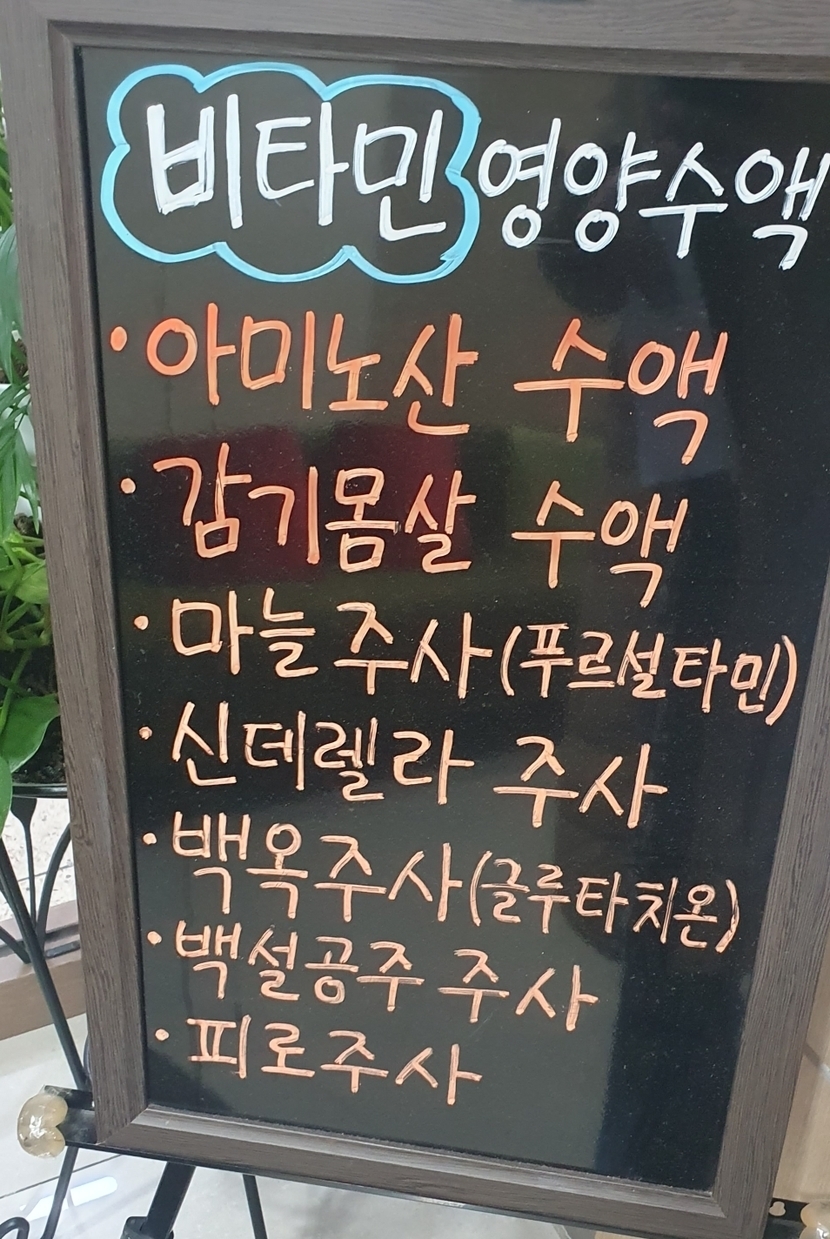 비타민 영양수액
· 아미노산 수액
· 감기몸살 수액
· 마늘주사(푸르설타민)
· 신데렐라 주사
· 백옥주사(글루타치온)
· 백설공주 주사
· 피로주사